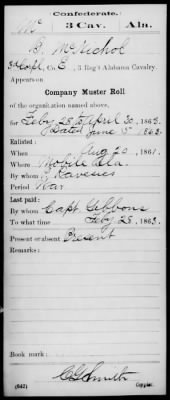 Confederate.
Mc 3 Cav. Ala.
S. McNichol
3d Corpl, Co. E, 3 Reg't Alabama Cavalry.
Appears on
Company Muster Roll
of the organization named above,
for Feby 28 to April 30, 1863.
Dated June 5 1863.
Enlisted:
When Aug 20, 1861.
Where Mobile Ala.
By whom
Period War
Last paid:
By whom Capt. Gibbons
To what time Feby 28, 1863.
Present or absent Present
Remarks:
Book mark:
(642) Copyist.